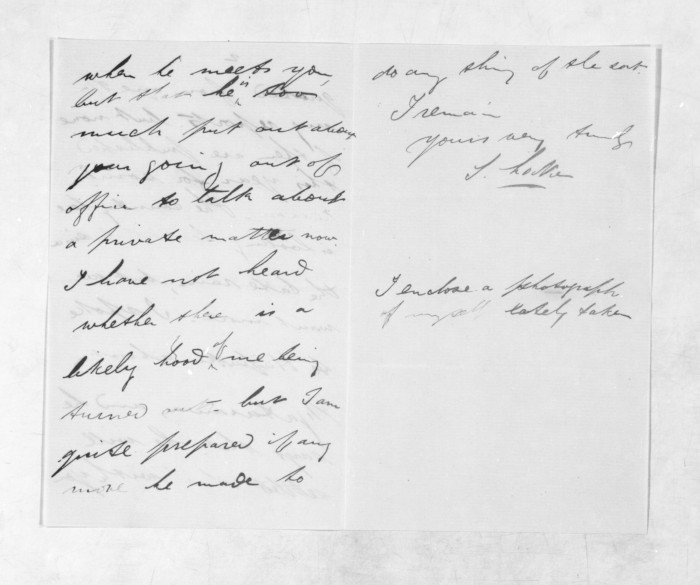 when he meets you,
but he is too
much put out about
your going out of
office to talk about
a private matter now.
I have not heard
whether there is a
likely hood of me being
turned out - but I am
quite prepared if any
move be made to
do any thing of the sort.
I remain
yours very truly
I enclose a photograph
of myself lately taken